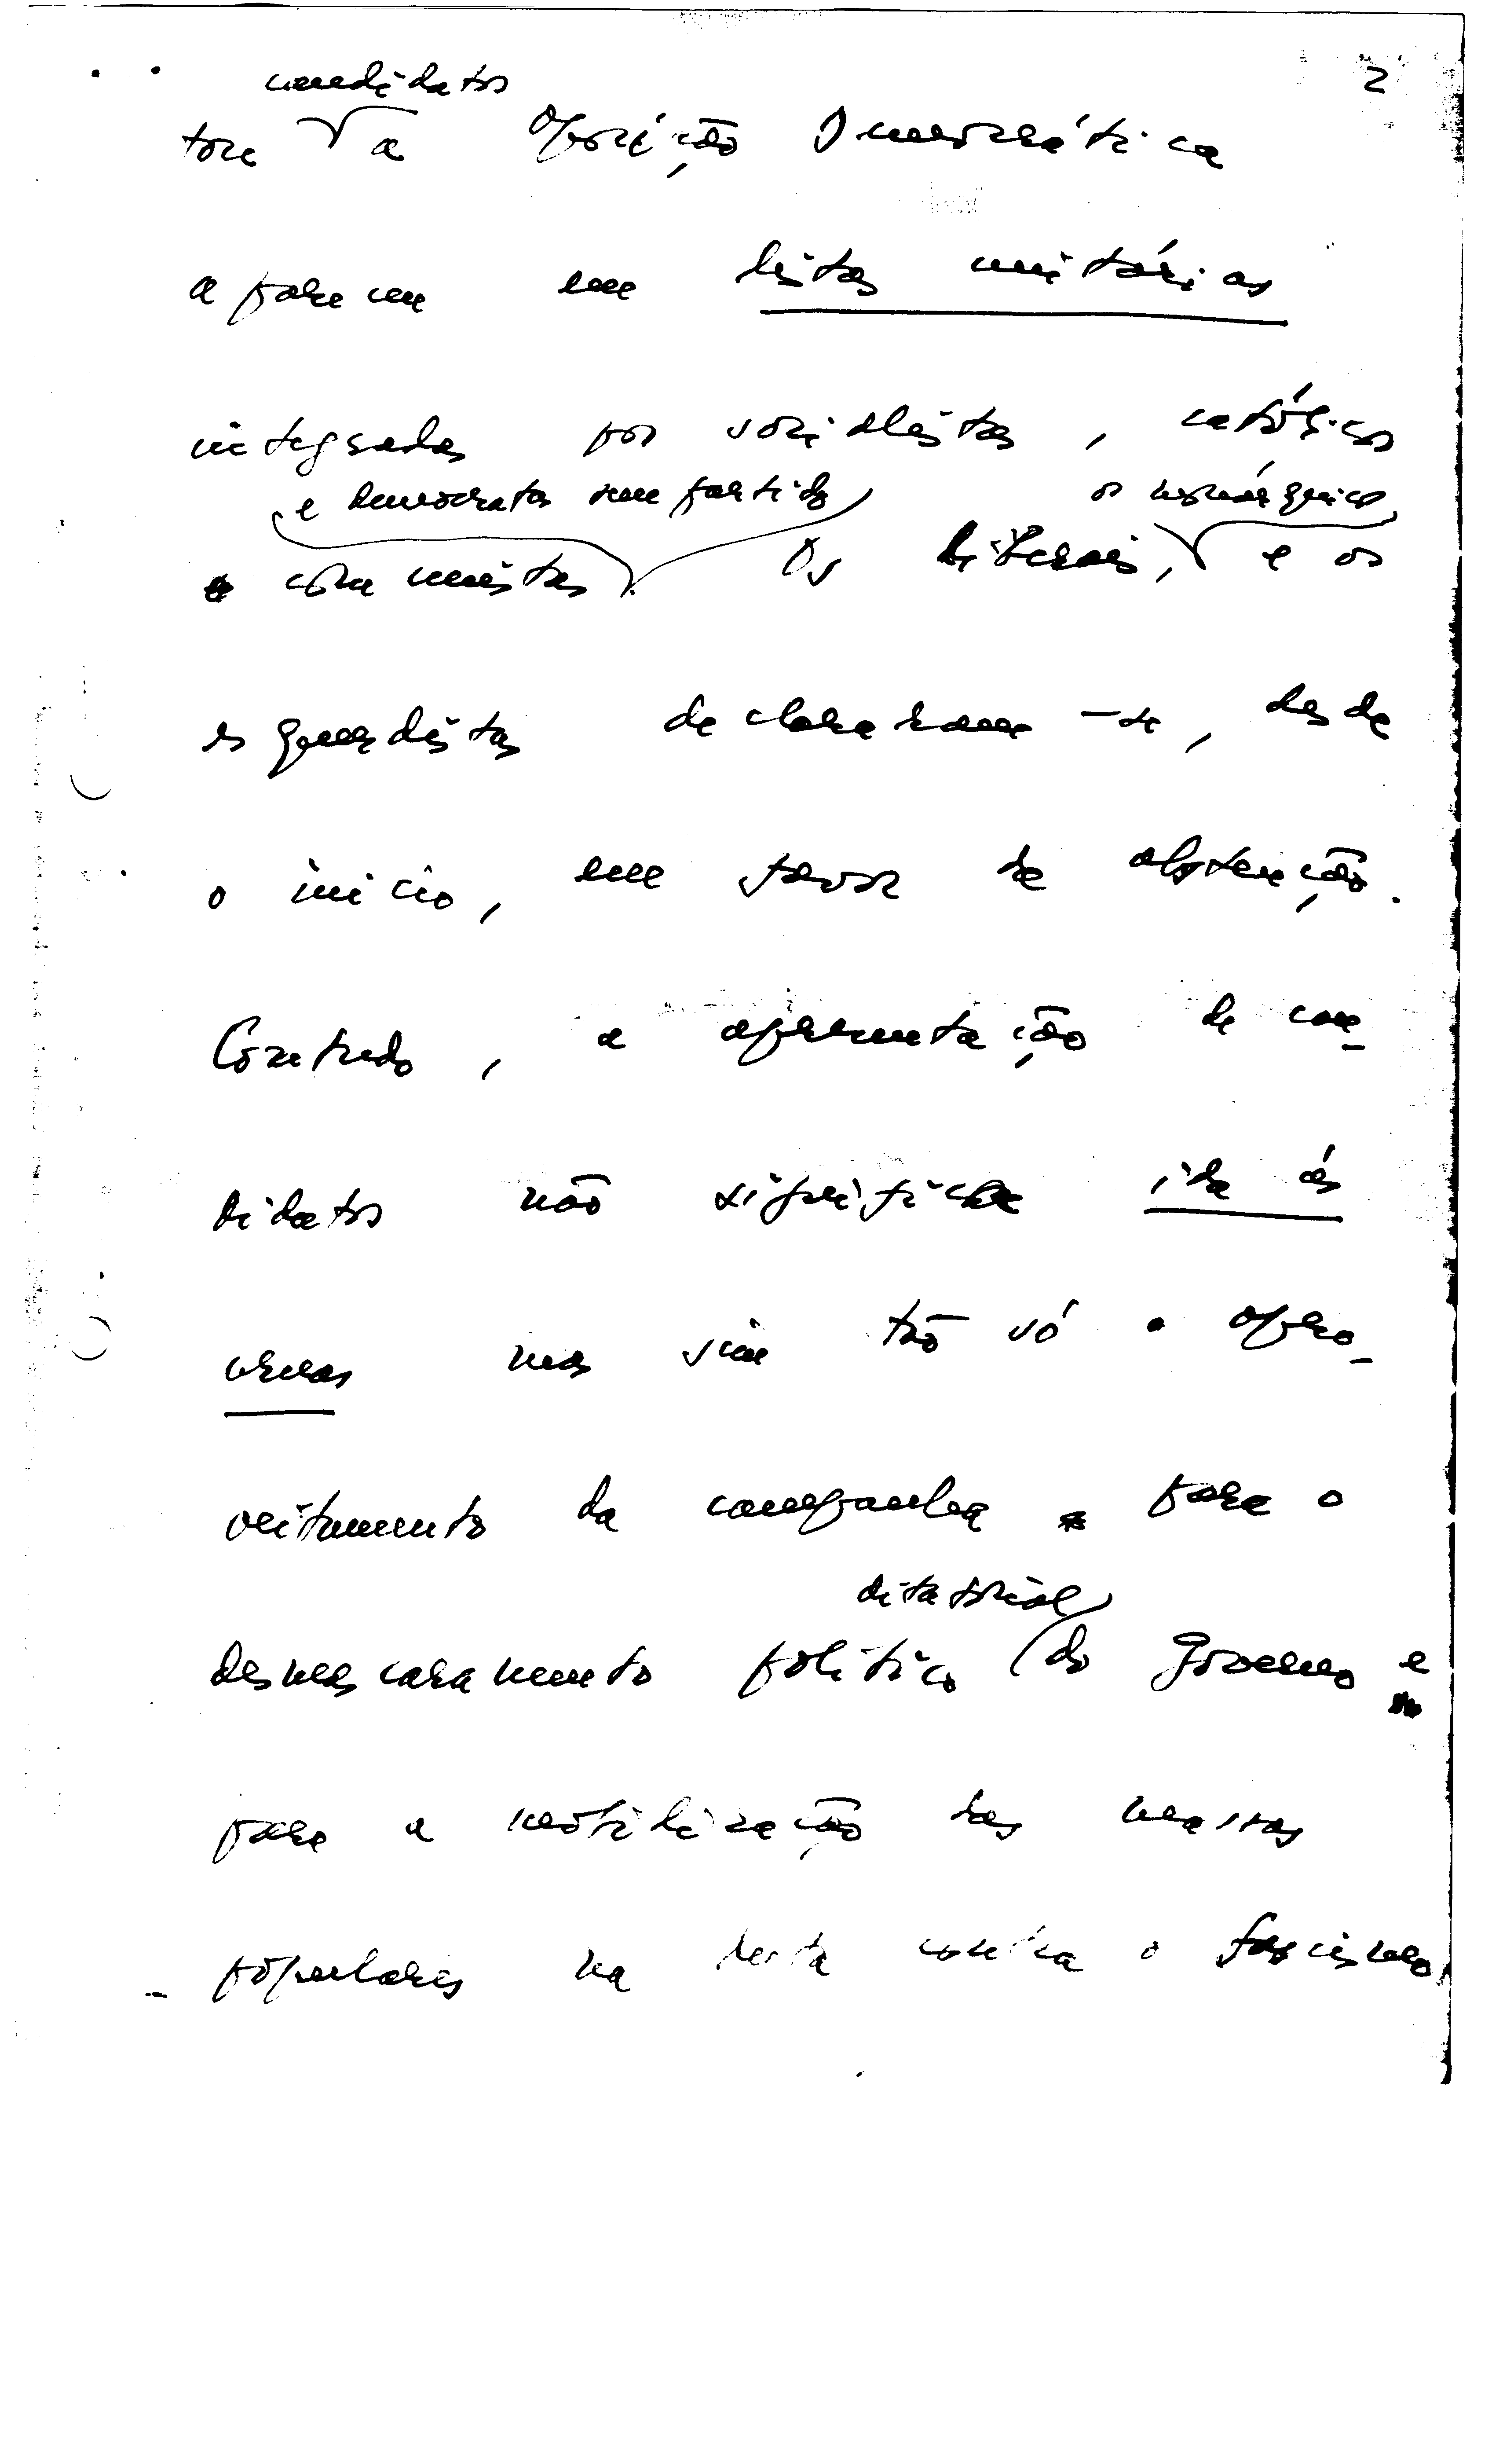 2
candidatos
tou a Oposição Democrática
aparecem em listas unitárias
integradas por socialistas, católicos
e democratas sem partido os monárquicos
comunistas. Os liberais, e os
esquerdistas declararam-se, desde
o início, em favor da abstenção.
Contudo, a apresentação de can-
didatos não significa ida às
urnas mas sim tão só o apro-
veitamento da campanha para o
ditatorial
desmascaramento político do Governo e
para a mobilização das massas
populares na luta contra o fascismo,